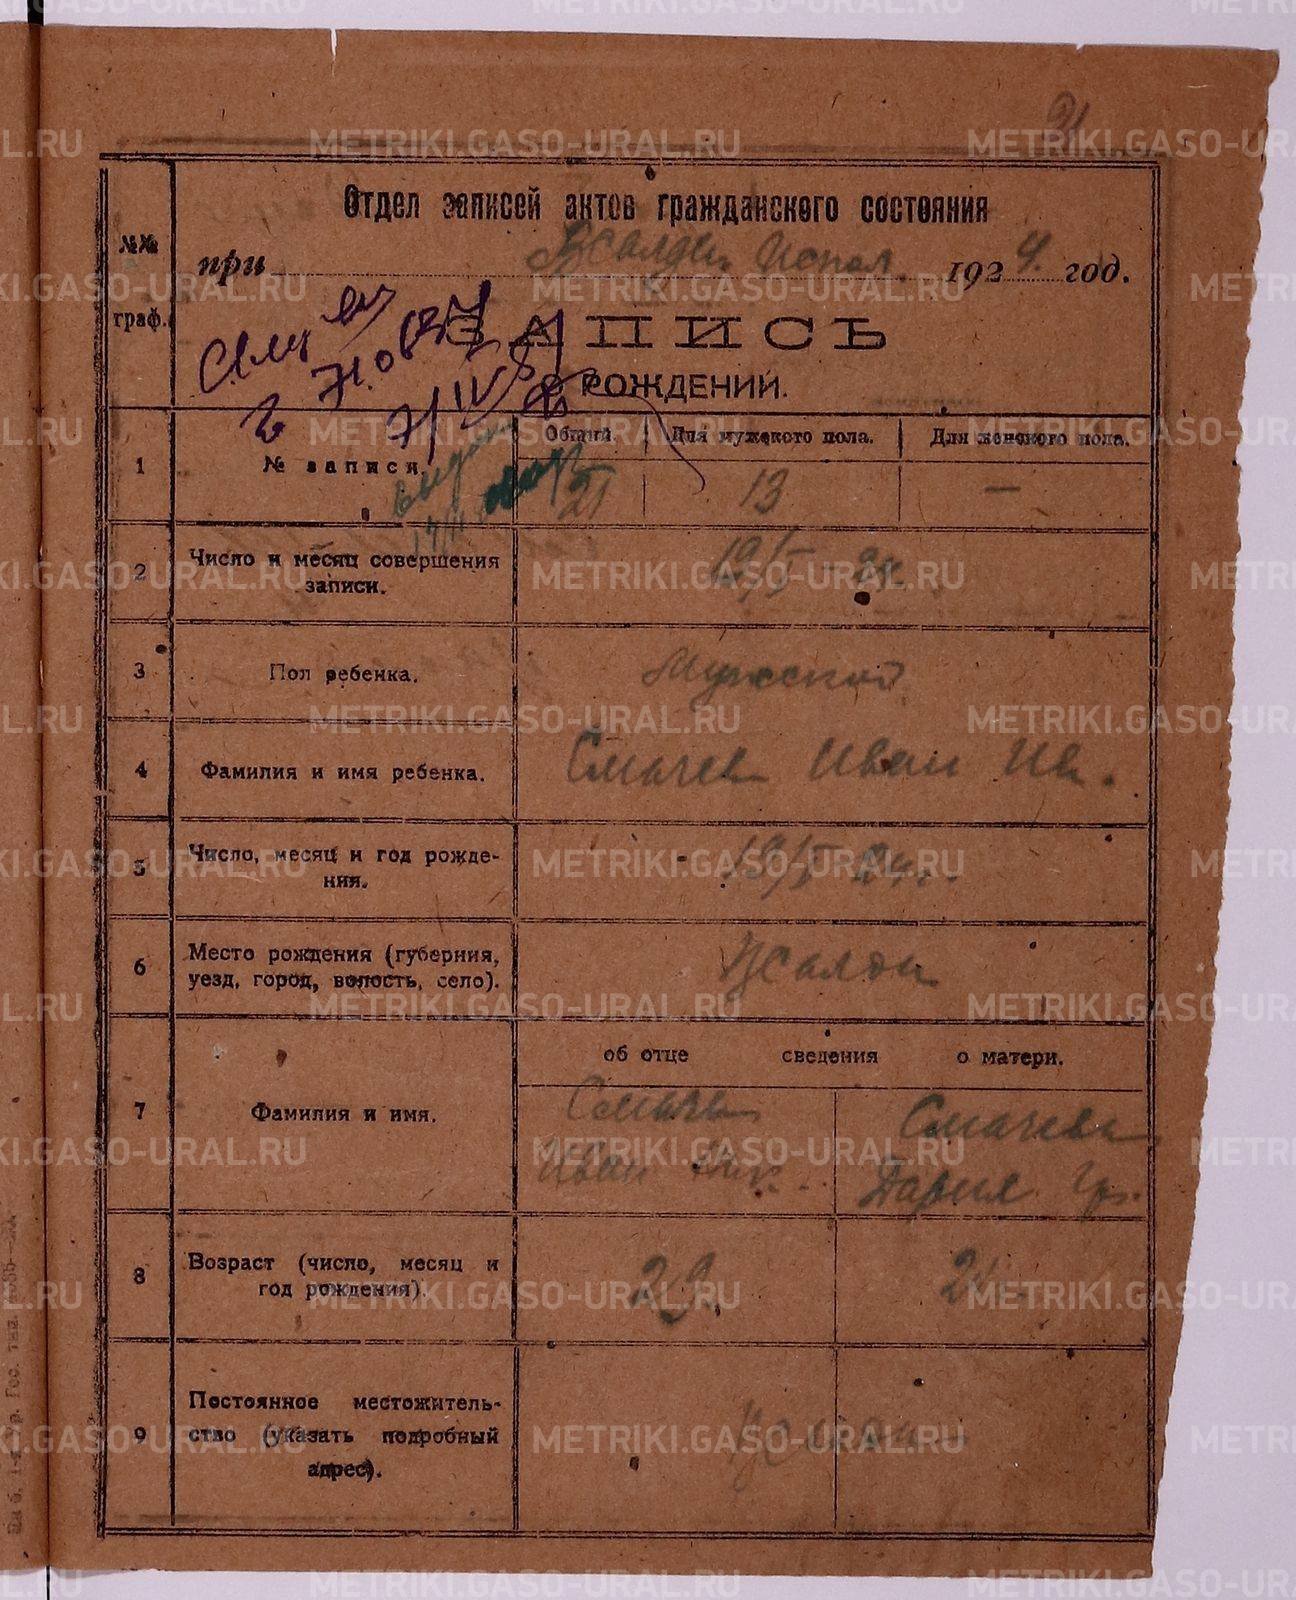 21
Отдел записей актов гражданского состояния
№№ граф.
при В Салдин. Испол. 1924 год.
ЗАПИСЬ
О РОЖДЕНИЙ.
Общий. Для мужского пола. Для женского пола.
1 № записи. 21 13 —
2 Число и месяц совершения
записи. 19/V - 24
3 Пол ребенка. Мужской
4 Фамилия и имя ребенка. Смачев Иван Ив.
5 Число, месяц и год рожде-
ния. 19/V 24 г.
6 Место рождения (губерния,
уезд, город, волость, село). В Салда
об отце сведения о матери.
7 Фамилия и имя. Смачев Смачева
Иван Ник. Дария Гр.
8 Возраст (число, месяц и
год рождения). 29. 24
9 Постоянное местожитель-
ство (указать подробный
адрес). В Салда
METRIKI.GASO-URAL.RU